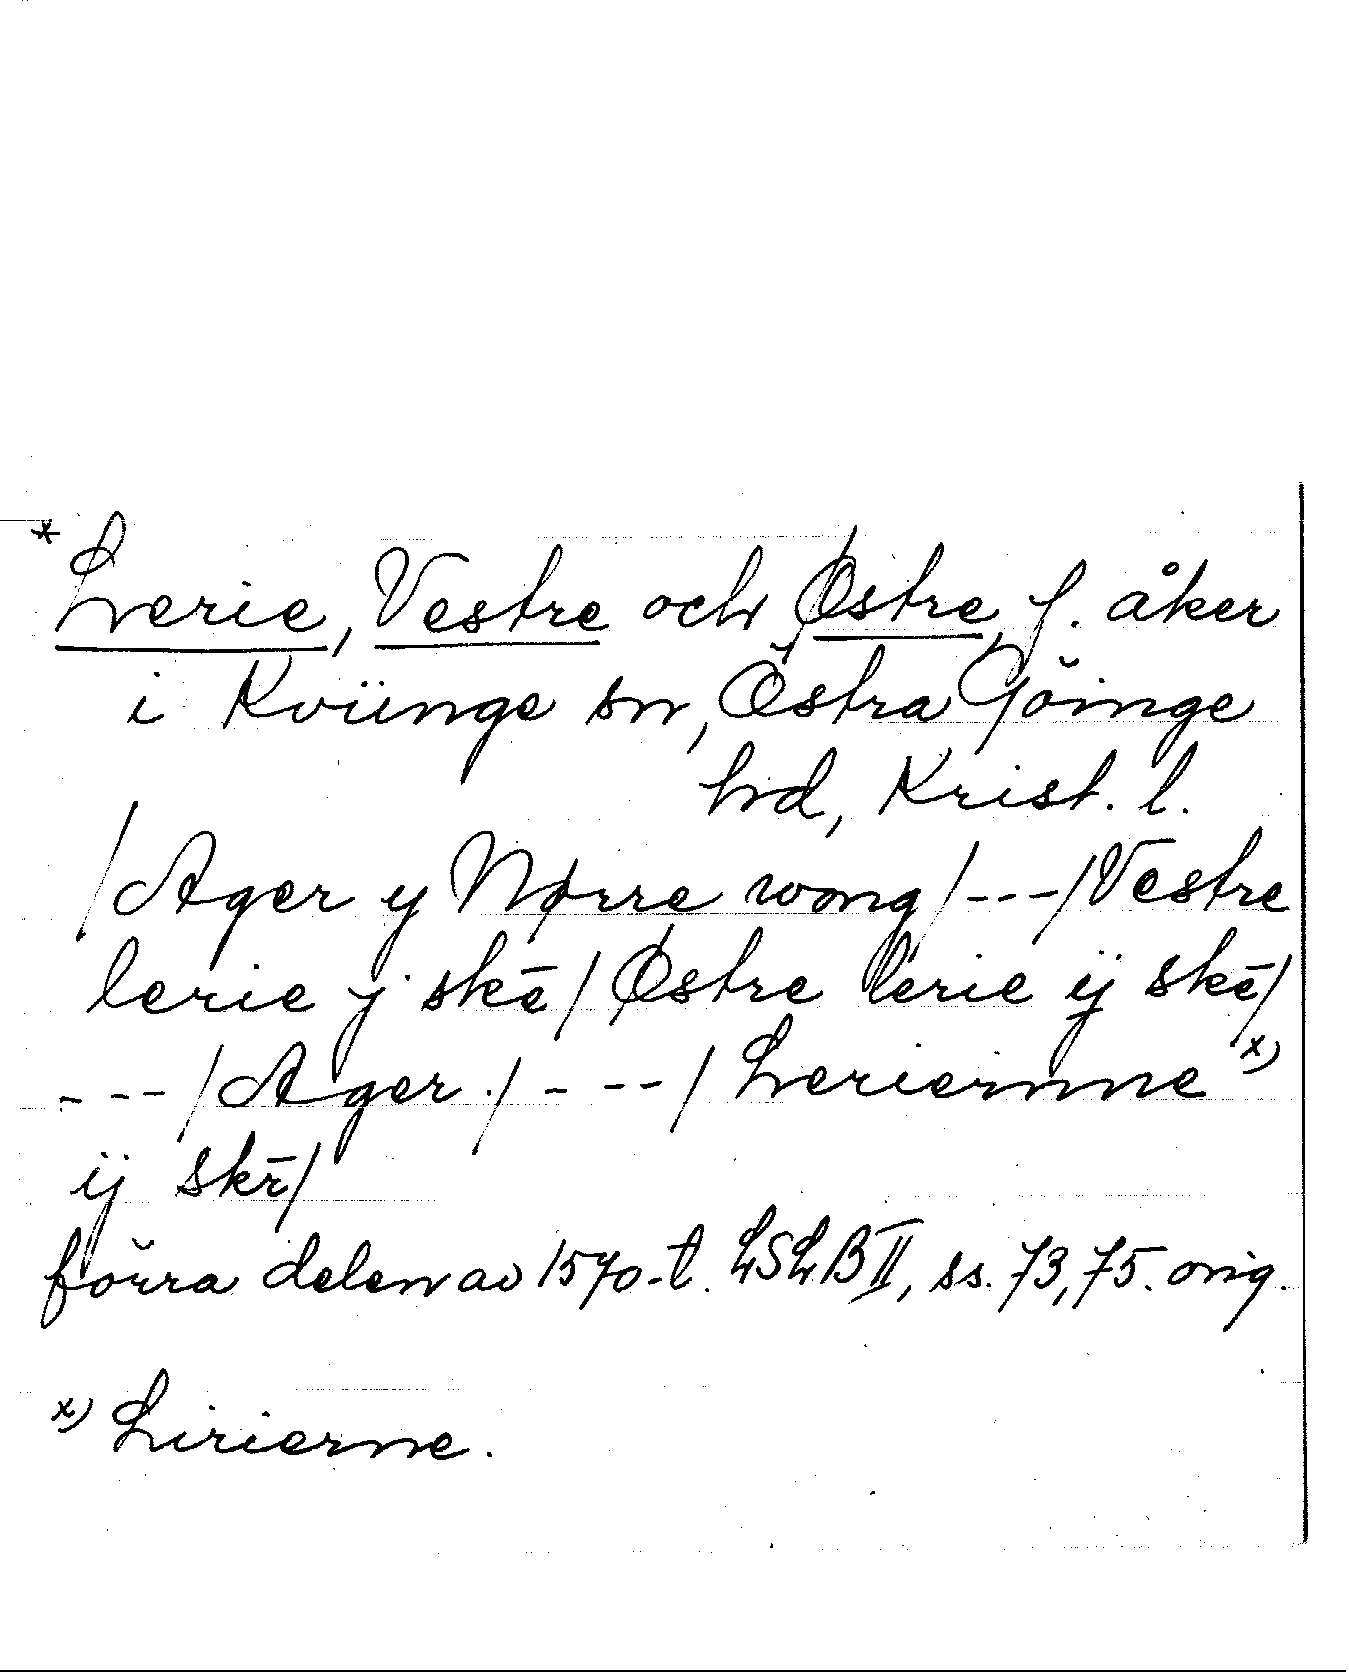 * Lerie, Vestre och Østre, f. åker
i Kviinge sn, Östra Göinge
hd, Krist. l.
/Ager y Nørre wong/---/Vestre
lerie j skē/Østre lerie ij skē/
---/Ager./---/Leriernne x)
ij skē/
förra delen av 1570-t. LSLB II, ss. 73, 75. orig.
x) Lirierne.